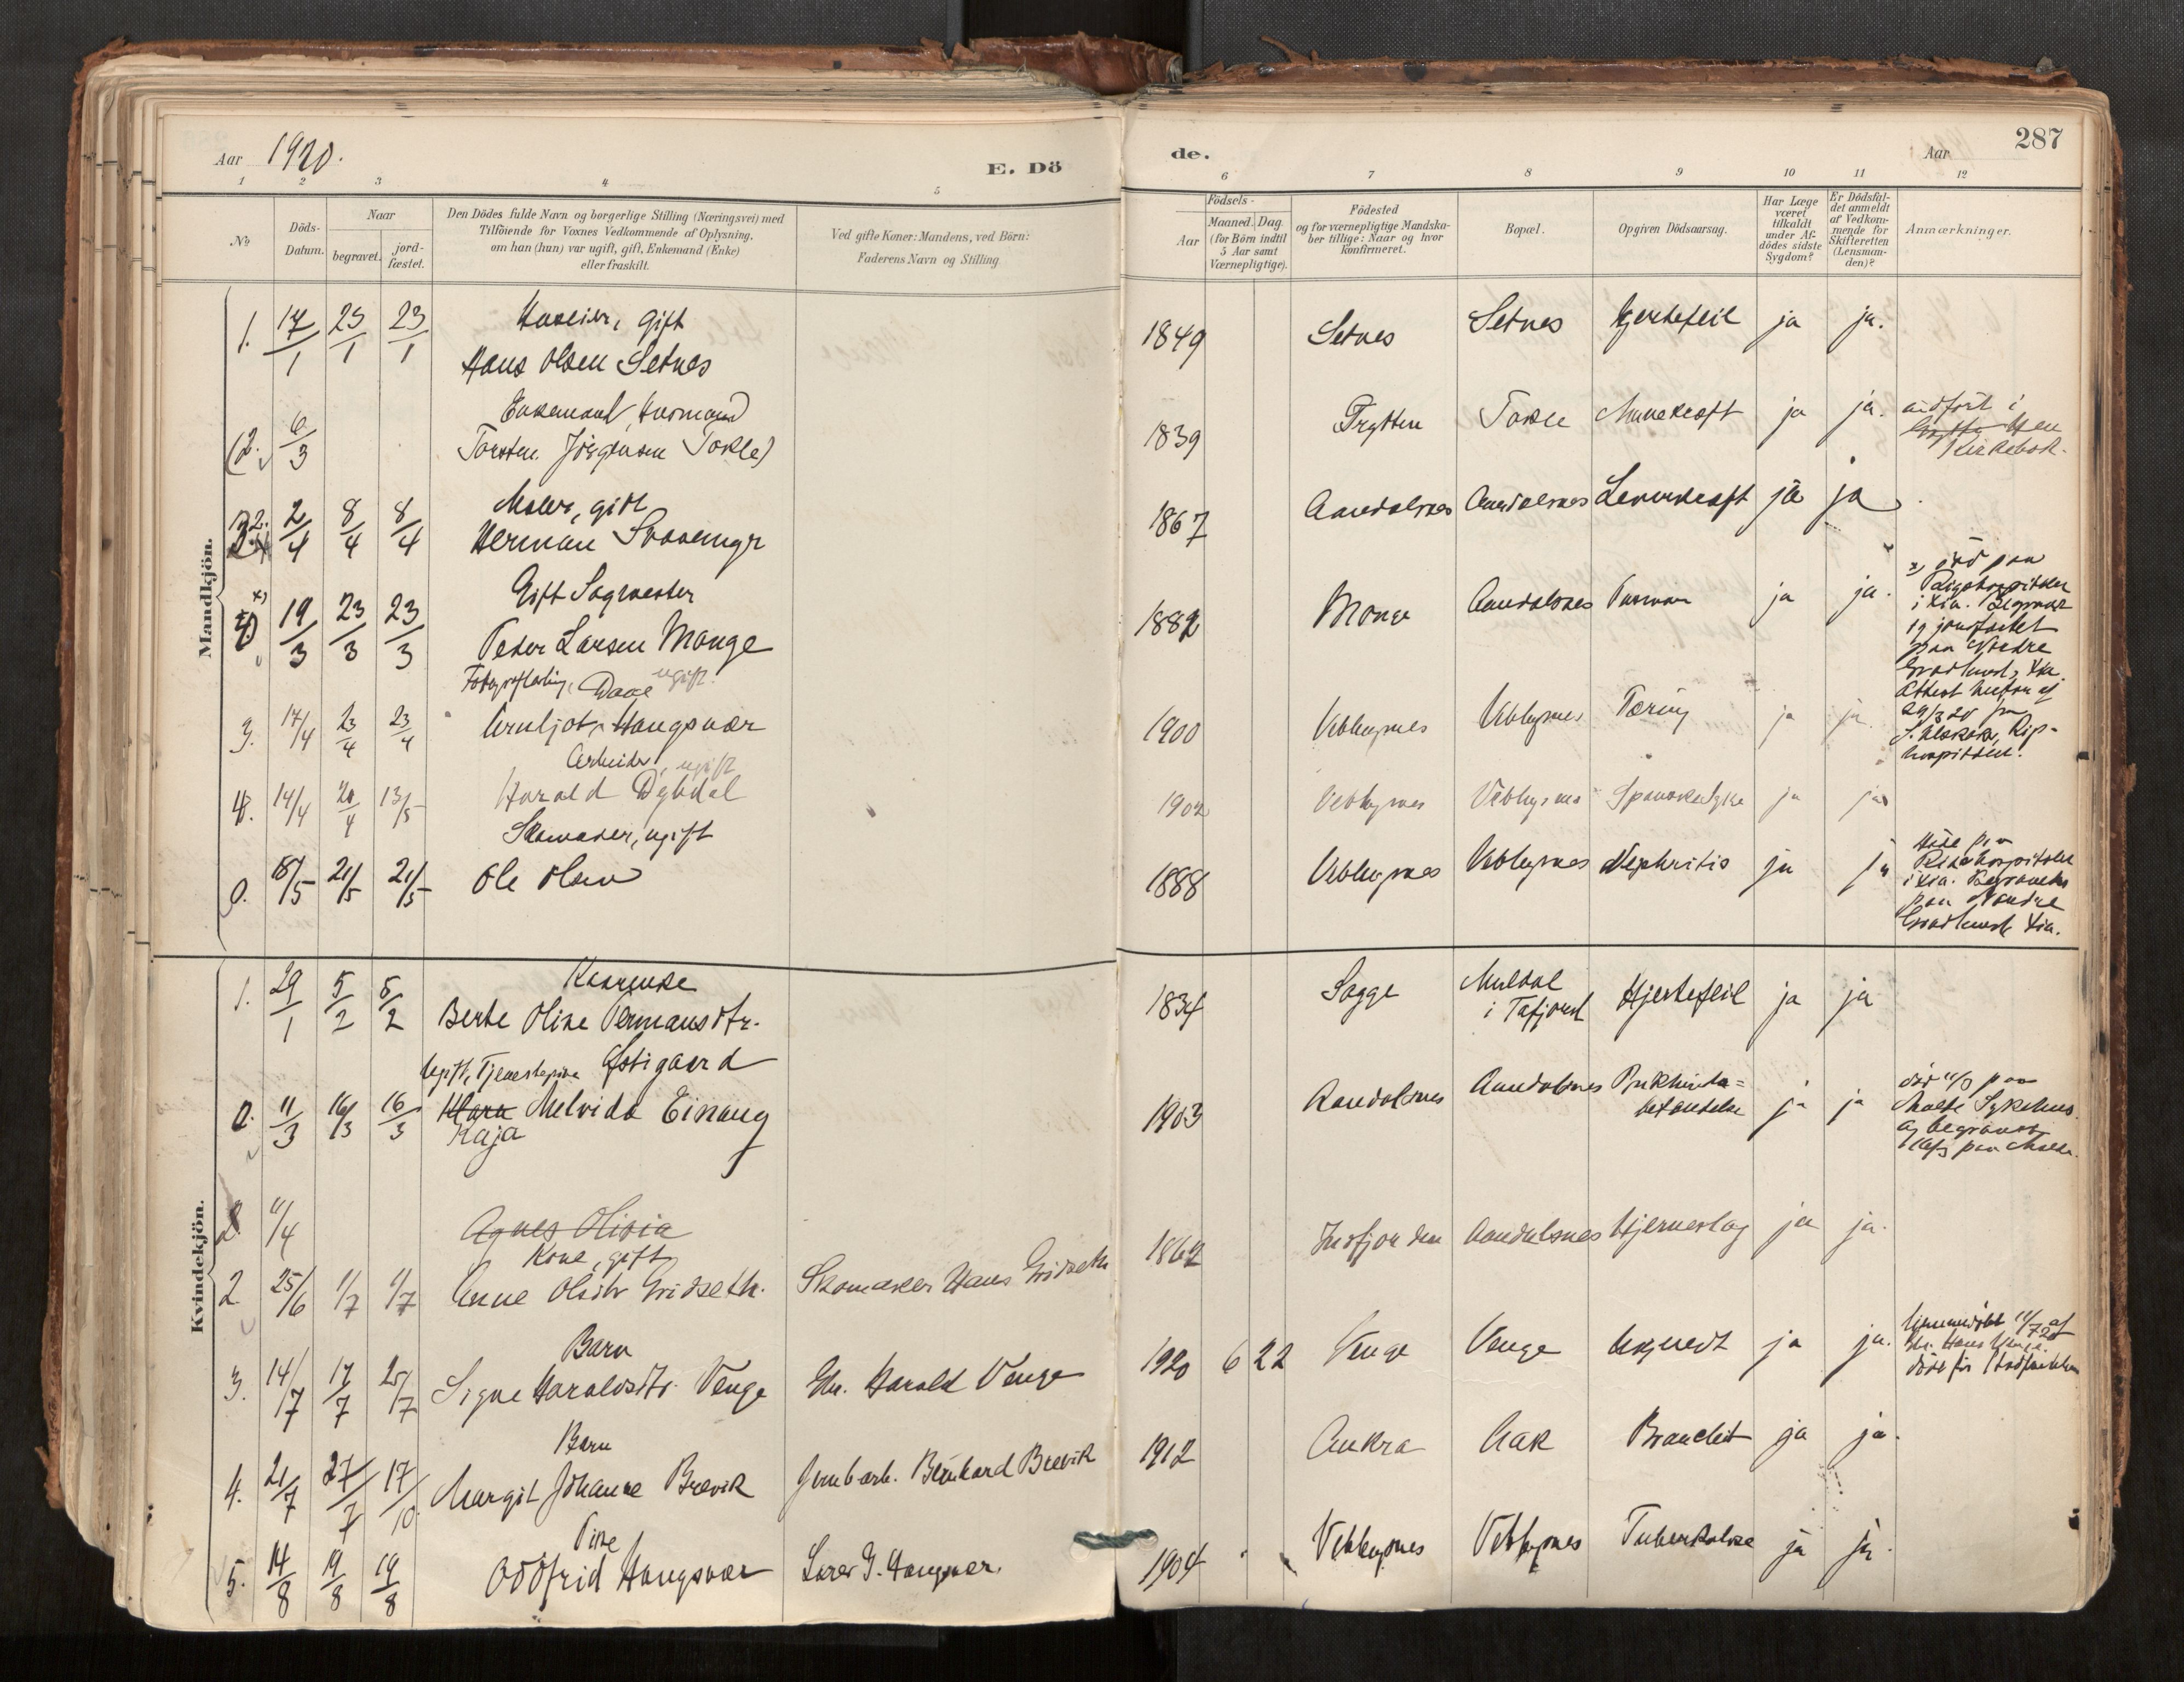 Aar 1920.
E. Dö
de.
Aar
287
1 2 3 4 5 6 7 8 9 10 11 12
No
Döds-Datum.
Naar
begravet.
jord-fæstet.
Den Dödes fulde Navn og borgerlige Stilling (Næringsvei) med
Tilföiende for Voxnes Vedkommende af Oplysning,
om han (hun) var ugift, gift, Enkemand (Enke)
eller fraskilt.
Ved gifte Koner: Mandens, ved Börn:
Faderens Navn og Stilling.
Födsels-
Aar
Maaned. Dag.
(for Börn indtil
5 Aar samt
Værnepligtige).
Födested
og for værnepligtige Mandska-
ber tillige: Naar og hvor
konfirmeret.
Bopæl.
Opgiven Dödsaarsag.
Har Læge
været
tilkaldt
under Af-
dödes sidste
Sygdom?
Er Dödsfal-
det anmeldt
af Vedkom-
mende for
Skifteretten
(Lensman-
den)?
Anmærkninger.
Mandkjön.
gift
1. 17/1 23/1 23/1 Hans Olsen Setnes 1849 Setnes Setnes Hjertefeil ja ja.
Enkemand, Husmand
(2. 6/3 Torsten Jörgensen Tokle) 1839 Trytten Tokle ja ja. indfört i
Hen
Kirkebok.
Maler, gift
2/4 8/4 8/4 Herman 1867 Aandalsnes Aandalsnes ja ja
Gift Sagmester
19/3 23/3 23/3 Peder Larsen Monge 1882 Monge Aandalsnes ja ja.
x) död paa
Rigshospitalet
i Kra.
og jordfæstet
paa Nordre
Gravlund, Kra.
ugift.
3. 17/4 23/4 23/4 Arnljot Haugsvær 1900 Veblugsnes Veblugsnes Tæring ja ja.
Arbeider, ugift
4. 14/4 20/4 13/5 Harald Dybdal 1902 Veblugsnes Veblugsnes Spanskesyke ja ja
Skomaker, ugift
18/5 21/5 21/5 Ole Olsen 1888 Veblugsnes Veblugsnes Nephritis ja ja
Döde paa
Rikshospitalet
i Kra. Begravet
paa Nordre
Gravlund Kra.
Kvindekjön.
1. 29/1 5/2 5/2 Berte Oline Permansdtr. 1834 Sogge Muldal
i Tafjord Hjertefeil ja ja
Ugift, Tjenestepike Östigaard
2. 11/3 16/3 16/3 Klara Melvida Einang 1903 Aandalsnes Aandalsnes Bukhinde=
betændelse ja ja
Kaja
död 11/3 paa
Molde Sykehus
og begravet
paa Molde.
2. 11/4 Agnes Olivia
Kone, gift
2. 25/6 1/7 1/7 Anne Olsdtr Gridseth. Skomaker Hans Gridseth 1862 Innfjorden Aandalsnes Hjerneslag ja ja.
Barn
3. 14/7 17/7 25/7 Signe Haraldsdtr. Venge Gbr. Harald Venge 1920 6 22 Venge Venge ja ja.
Hjemmedöbt 11/7 20 af
Barn
4. 21/7 27/7 17/10 Margit Johanne Brevik Jernb.arb. Bernhard Brevik 1912 Aukra Aak ja ja.
Pike
5. 14/8 19/8 19/8 Oddfrid Haugsvær Lærer G. Haugsvær. 1904 Veblugsnes Veblugsnes Tuberkulose ja ja.